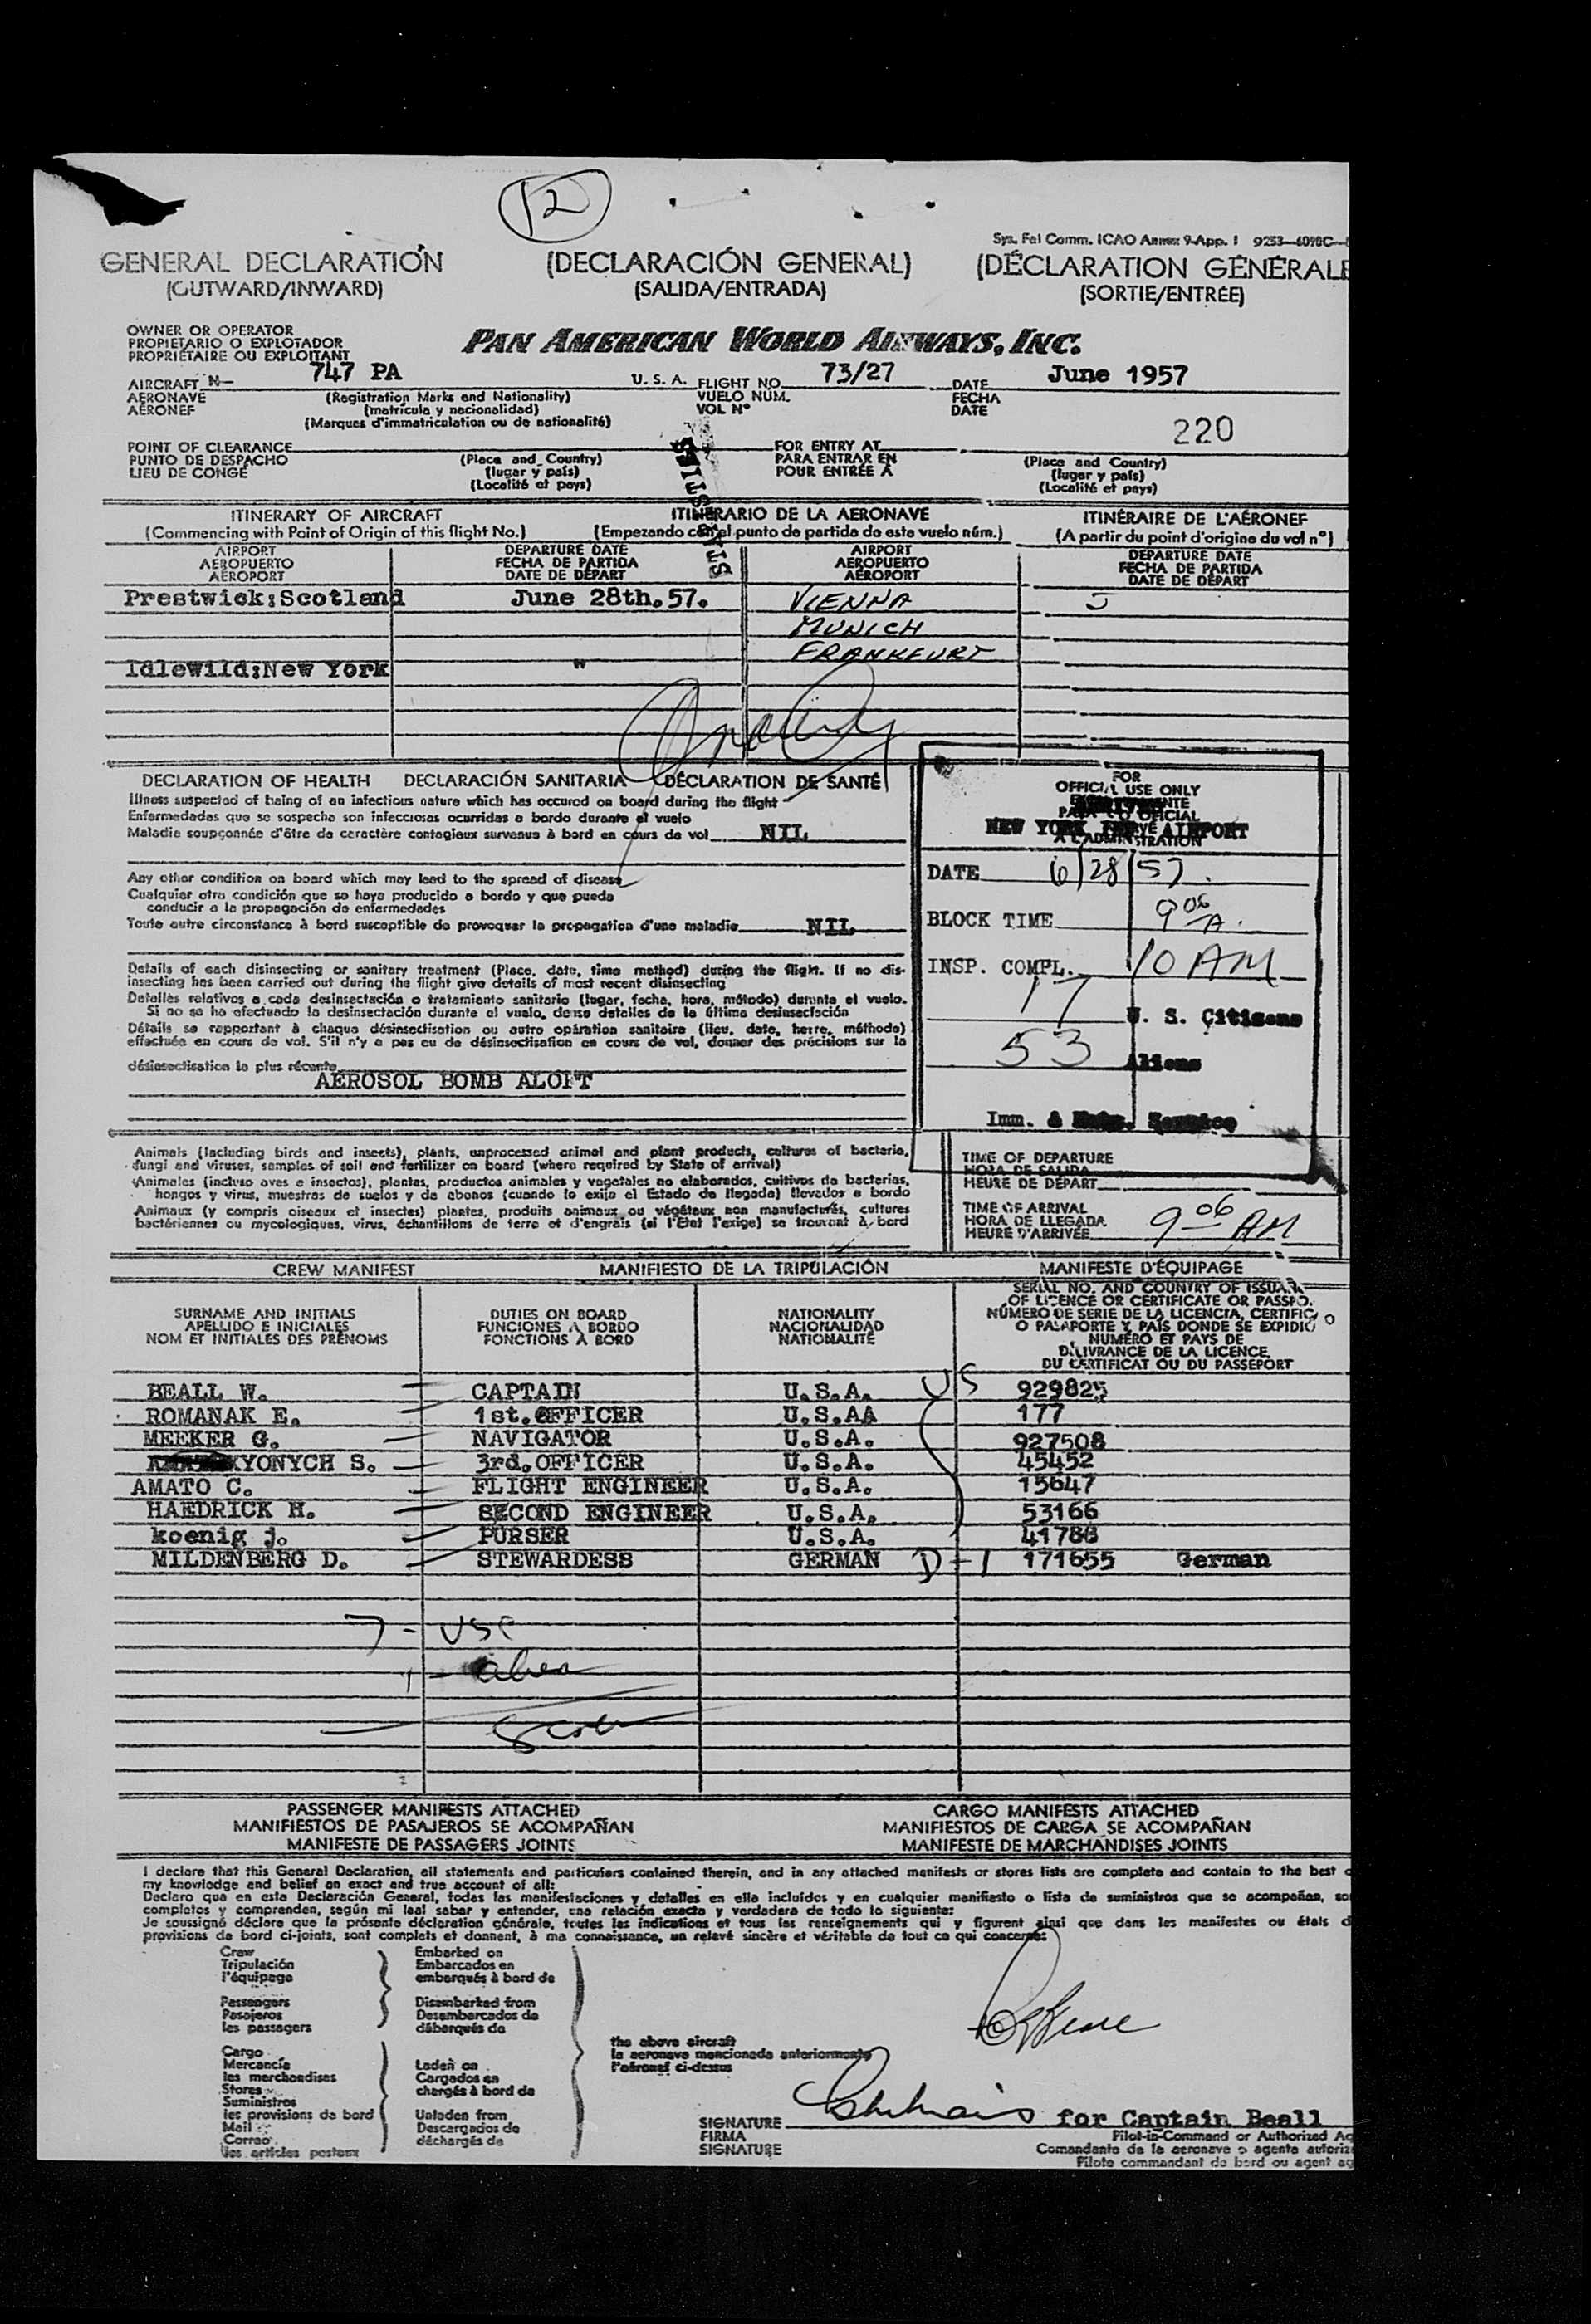 12
Sys. Fal Comm. ICAO Annex 9-App. 1 9253-4090C-
GENERAL DECLARATION (DECLARACIÓN GENERAL) (DÉCLARATION GÉNÉRALE
(OUTWARD/INWARD) (SALIDA/ENTRADA) (SORTIE/ENTRÉE)
OWNER OR OPERATOR
PROPIETARIO O EXPLOTADOR
PROPRIÉTAIRE OU EXPLOITANT
PAN AMERICAN WORLD AIRWAYS, INC.
AIRCRAFT N- 747 PA U. S. A. FLIGHT NO. 73/27 DATE June 1957
AERONAVE (Registration Marks and Nationality) VUELO NÚM. FECHA
AÉRONEF (matrícula y nacionalidad) VOL N° DATE
(Marques d'immatriculation ou de nationalité)
220
POINT OF CLEARANCE FOR ENTRY AT
PUNTO DE DESPACHO (Place and Country) PARA ENTRAR EN (Place and Country)
LIEU DE CONGÉ (lugar y país) POUR ENTRÉE À (lugar y país)
(Localité et pays) (Localité et pays)
ITINERARY OF AIRCRAFT ITINERARIO DE LA AERONAVE ITINÉRAIRE DE L'AÉRONEF
(Commencing with Point of Origin of this flight No.) (Empezando con el punto de partida de este vuelo núm.) (A partir du point d'origine du vol n°)
AIRPORT DEPARTURE DATE AIRPORT DEPARTURE DATE
AEROPUERTO FECHA DE PARTIDA AEROPUERTO FECHA DE PARTIDA
AÉROPORT DATE DE DÉPART AÉROPORT DATE DE DÉPART
Prestwick;Scotland June 28th.57. VIENNA
MUNICH
FRANKFURT
Idlewild;New York "
DECLARATION OF HEALTH DECLARACIÓN SANITARIA DÉCLARATION DE SANTÉ
Illness suspected of being of an infectious nature which has occured on board during the flight
Enfermedades que se sospecha son infecciosas ocurridas a bordo durante el vuelo
Maladie soupçonnée d'être de caractère contagieux survenue à bord en cours de vol NIL
Any other condition on board which may lead to the spread of disease
Cualquier otra condición que se haya producido a bordo y que pueda
conducir a la propagación de enfermedades
Toute autre circonstance à bord susceptible de provoquer la propagation d'une maladie NIL
Details of each disinsecting or sanitary treatment (Place, date, time method) during the flight. If no dis-
insecting has been carried out during the flight give details of most recent disinsecting
Detalles relativos a cada desinsectación o tratamiento sanitario (lugar, fecha, hora, método) durante el vuelo.
Si no se ha efectuado la desinsectación durante el vuelo, dense detalles de la última desinsectación
Détails se rapportant à chaque désinsectisation ou autre opération sanitaire (lieu, date, heure, méthode)
effectuée en cours de vol. S'il n'y a pas eu de désinsectisation en cours de vol, donner des précisions sur la
désinsectisation la plus récente
AEROSOL BOMB ALOFT
FOR
OFFICIAL USE ONLY
NEW YORK AIRPORT
DATE 6/28/57.
BLOCK TIME 9 06 A.
INSP. COMPL. 10 AM
17 U. S. Citizens
53 Aliens
Imm. & Service
Animals (Including birds and insects), plants, unprocessed animal and plant products, cultures of bacteria,
fungi and viruses, samples of soil and fertilizer on board (where required by State of arrival)
Animales (incluso aves e insectos), plantas, productos animales y vegetales no elaborados, cultivos de bacterias,
hongos y virus, muestras de suelos y de abonos (cuando lo exija el Estado de llegada) llevados a bordo
Animaux (y compris oiseaux et insectes) plantes, produits animaux ou végétaux non manufacturés, cultures
bactériennes ou mycologiques, virus, échantillons de terre et d'engrais (si l'État l'exige) se trouvant à bord
TIME OF DEPARTURE
HORA DE SALIDA
HEURE DE DÉPART
TIME OF ARRIVAL
HORA DE LLEGADA
HEURE D'ARRIVÉE 9 06 AM
CREW MANIFEST MANIFIESTO DE LA TRIPULACIÓN MANIFESTE D'ÉQUIPAGE
SURNAME AND INITIALS DUTIES ON BOARD NATIONALITY SERIAL NO. AND COUNTRY OF ISSUANCE
APELLIDO E INICIALES FUNCIONES A BORDO NACIONALIDAD OF LICENCE OR CERTIFICATE OR PASSPO.
NOM ET INITIALES DES PRÉNOMS FONCTIONS À BORD NATIONALITÉ NÚMERO DE SERIE DE LA LICENCIA, CERTIFIC
O PASAPORTE Y PAÍS DONDE SE EXPIDIÓ
NUMÉRO ET PAYS DE
DÉLIVRANCE DE LA LICENCE
DU CERTIFICAT OU DU PASSEPORT
BEALL W. CAPTAIN U.S.A. US 929825
ROMANAK E. 1st.OFFICER U.S.AA 177
MEEKER G. NAVIGATOR U.S.A. 927508
KYONYCH S. 3rd.OFFICER U.S.A. 45452
AMATO C. FLIGHT ENGINEER U.S.A. 15647
HAEDRICK H. SECOND ENGINEER U.S.A. 53166
koenig j. PURSER U.S.A. 41786
MILDENBERG D. STEWARDESS GERMAN D-1 171655 German
7 - USC
1 - alien
PASSENGER MANIFESTS ATTACHED CARGO MANIFESTS ATTACHED
MANIFIESTOS DE PASAJEROS SE ACOMPAÑAN MANIFIESTOS DE CARGA SE ACOMPAÑAN
MANIFESTE DE PASSAGERS JOINTS MANIFESTE DE MARCHANDISES JOINTS
I declare that this General Declaration, all statements and particulars contained therein, and in any attached manifests or stores lists are complete and contain to the best o
my knowledge and belief an exact and true account of all:
Declaro que en esta Declaración General, todas las manifestaciones y detalles en ella incluidos y en cualquier manifiesto o lista de suministros que se acompañan, so
completos y comprenden, según mi leal saber y entender, una relación exacta y verdadera de todo lo siguiente:
Je soussigné déclare que la présente déclaration générale, toutes les indications et tous les renseignements qui y figurent ainsi que dans les manifestes ou états d
provisions de bord ci-joints, sont complets et donnent, à ma connaissance, un relevé sincère et véritable de tout ce qui concerne:
Crew Embarked on
Tripulación Embarcados en
l'équipage embarqués à bord de
Passengers Disembarked from
Pasajeros Desembarcados de
les passagers débarqués de
the above aircraft
la aeronave mencionada anteriormente
l'aéronef ci-dessus
Cargo
Mercancía Laden on
les merchandises Cargados en
Stores chargés à bord de
Suministros
les provisions de bord Unladen from
Mail Descargados de
Correo déchargés de
les articles postaux
SIGNATURE for Captain Beall
FIRMA Pilot-in-Command or Authorized Ag
SIGNATURE Comandante de la aeronave o agente autoriz
Pilote commandant de bord ou agent ag